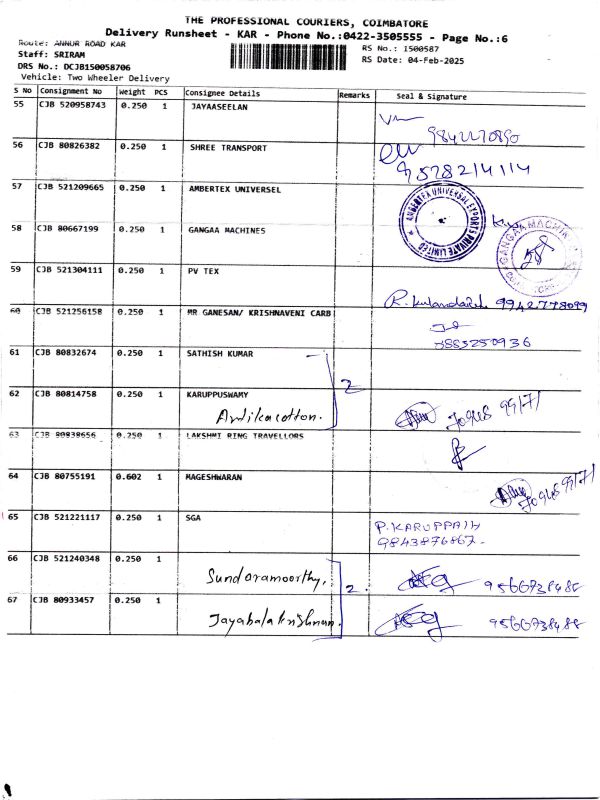 THE PROFESSIONAL COURIERS, COIMBATORE
Delivery Runsheet - KAR - Phone No.:0422-3505555 - Page No.:6
Route: ANNUR ROAD KAR
RS No.: I500587
Staff: SRIRAM
RS Date: 04-Feb-2025
DRS No.: DCJB150058706
Vehicle: Two Wheeler Delivery
S No Consignment No Weight PCS Consignee Details Remarks Seal & Signature
55 CJB 520958743 0.250 1 JAYAASEELAN
56 CJB 80826382 0.250 1 SHREE TRANSPORT
57 CJB 521209665 0.250 1 AMBERTEX UNIVERSEL
AMBERTEX UNIVERSAL EXPORTS PRIVATE LIMITED
58 CJB 80667199 0.250 1 GANGAA MACHINES
59 CJB 521304111 0.250 1 PV TEX
9942778099
60 CJB 521256158 0.250 1 MR GANESAN/ KRISHNAVENI CARB
61 CJB 80832674 0.250 1 SATHISH KUMAR
2
62 CJB 80814758 0.250 1 KARUPPUSWAMY
63 CJB 80838656 0.250 1 LAKSHMI RING TRAVELLORS
64 CJB 80755191 0.602 1 MAGESHWARAN
65 CJB 521221117 0.250 1 SGA
P.KARUPPAIH
9843876867.
66 CJB 521240348 0.250 1
Sundaramoorthy, 2. 9566738488
67 CJB 80933457 0.250 1
Jayabalakrishnan. 9566738488